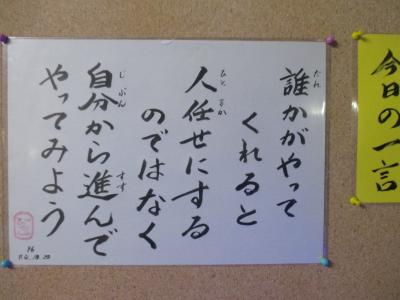 今日の一言
誰かがやって
だれ
くれると
人任せにする
ひと まか
のではなく
自分から進んで
じ ぶん すす
やってみよう